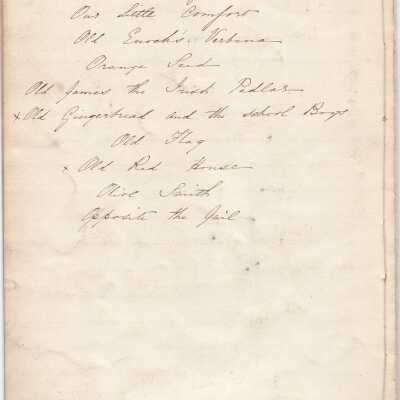 Our Little Comfort
Old Enoch's Verbena
Orange Seed
Old James the Irish Pedlar
x Old Gingerbread and the School Boys
Old Flag
x Old Red House
Olive Smith
Opposite the Jail